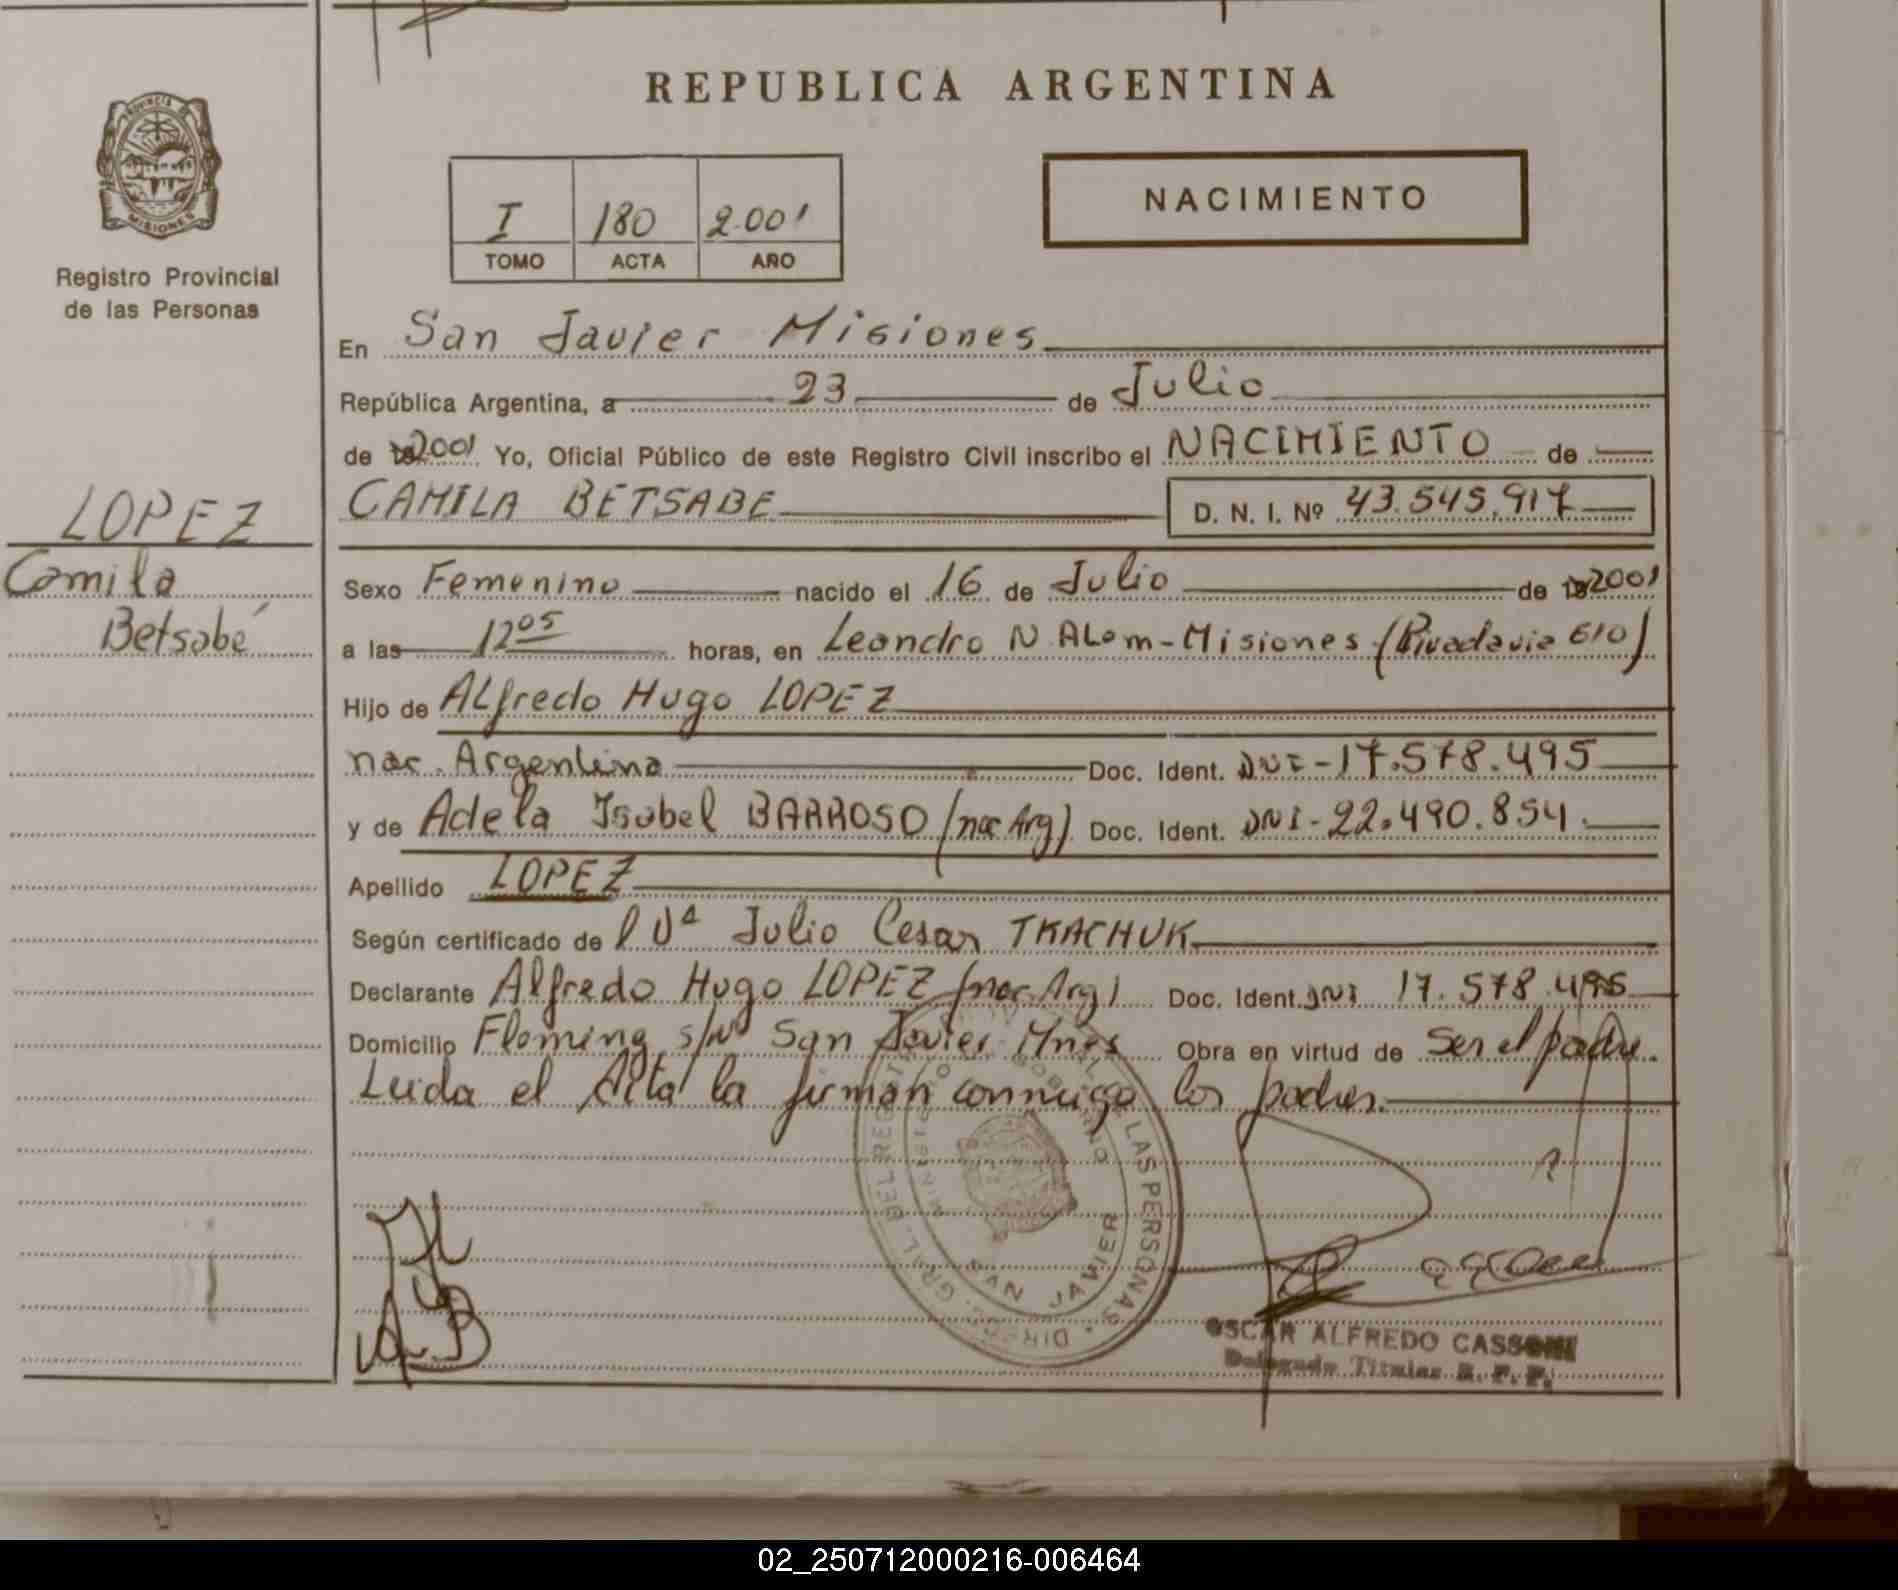 REPUBLICA ARGENTINA
PROVINCIA DE
MISIONES
Registro Provincial
de las Personas
I 180 2.001
TOMO ACTA AÑO
NACIMIENTO
En San Javier Misiones
República Argentina, a 23 de Julio
de 2001 Yo, Oficial Público de este Registro Civil inscribo el NACIMIENTO de
CAMILA BETSABE D. N. I. Nº 43.545.917
LOPEZ
Camila
Betsabé
Sexo Femenino nacido el 16 de Julio de 2001
a las 12 05 horas, en Leandro N. ALem - Misiones (Rivadavia 610)
Hijo de ALfredo Hugo LOPEZ
nac. Argentina Doc. Ident. DNI - 17.578.495
y de Adela Isabel BARROSO (nac Arg) Doc. Ident. DNI - 22.490.854.
Apellido LOPEZ
Según certificado de Julio Cesar TKACHUK
Declarante Alfredo Hugo LOPEZ (nac. Arg) Doc. Ident. DNI 17.578.495
Domicilio Fleming s/Nº San Javier Mnes Obra en virtud de ser el padre.
Leida el Acta la firman conmigo los padres.
DIREC. GRAL. DEL REGISTRO DE LAS PERSONAS
MINISTERIO GOBIERNO
SAN JAVIER
OSCAR ALFREDO CASSONI
Delegado Titular R. P. P.
02_250712000216-006464